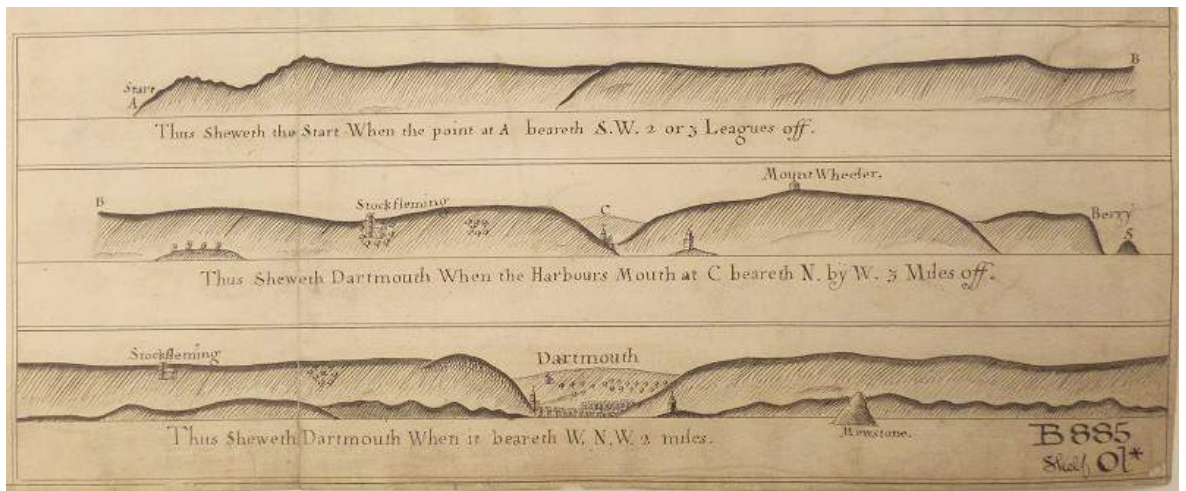 Start
A
B
Thus Sheweth the Start When the point at A beareth S.W. 2 or 3 Leagues off.
B
Stockfleming
C
Mount Wheeler.
Berry
S
Thus Sheweth Dartmouth When the Harbours Mouth at C beareth N. by W. 3 Miles off.
Stockfleming
Dartmouth
Mewstone.
Thus Sheweth Dartmouth When it beareth W. N. W. 2 miles.
B 885
Shelf 01*